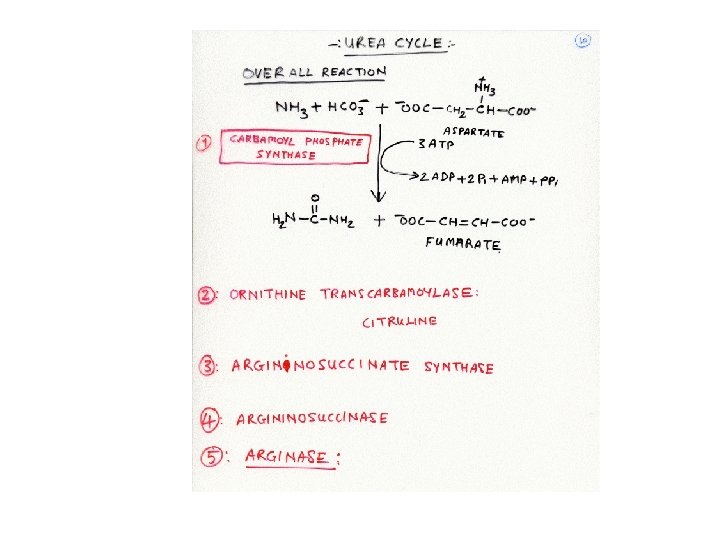 -: UREA CYCLE :-
10
OVER ALL REACTION
NH₃ + HCO₃⁻ + ⁻OOC-CH₂-CH-COO⁻
⁺NH₃
ASPARTATE
① CARBAMOYL PHOSPHATE
SYNTHASE
3 ATP
2 ADP + 2 Pi + AMP + PPi
O
H₂N-C-NH₂ + ⁻OOC-CH=CH-COO⁻
FUMARATE
②: ORNITHINE TRANSCARBAMOYLASE:
CITRULINE
③: ARGININOSUCCINATE SYNTHASE
④: ARGININOSUCCINASE
⑤: ARGINASE: